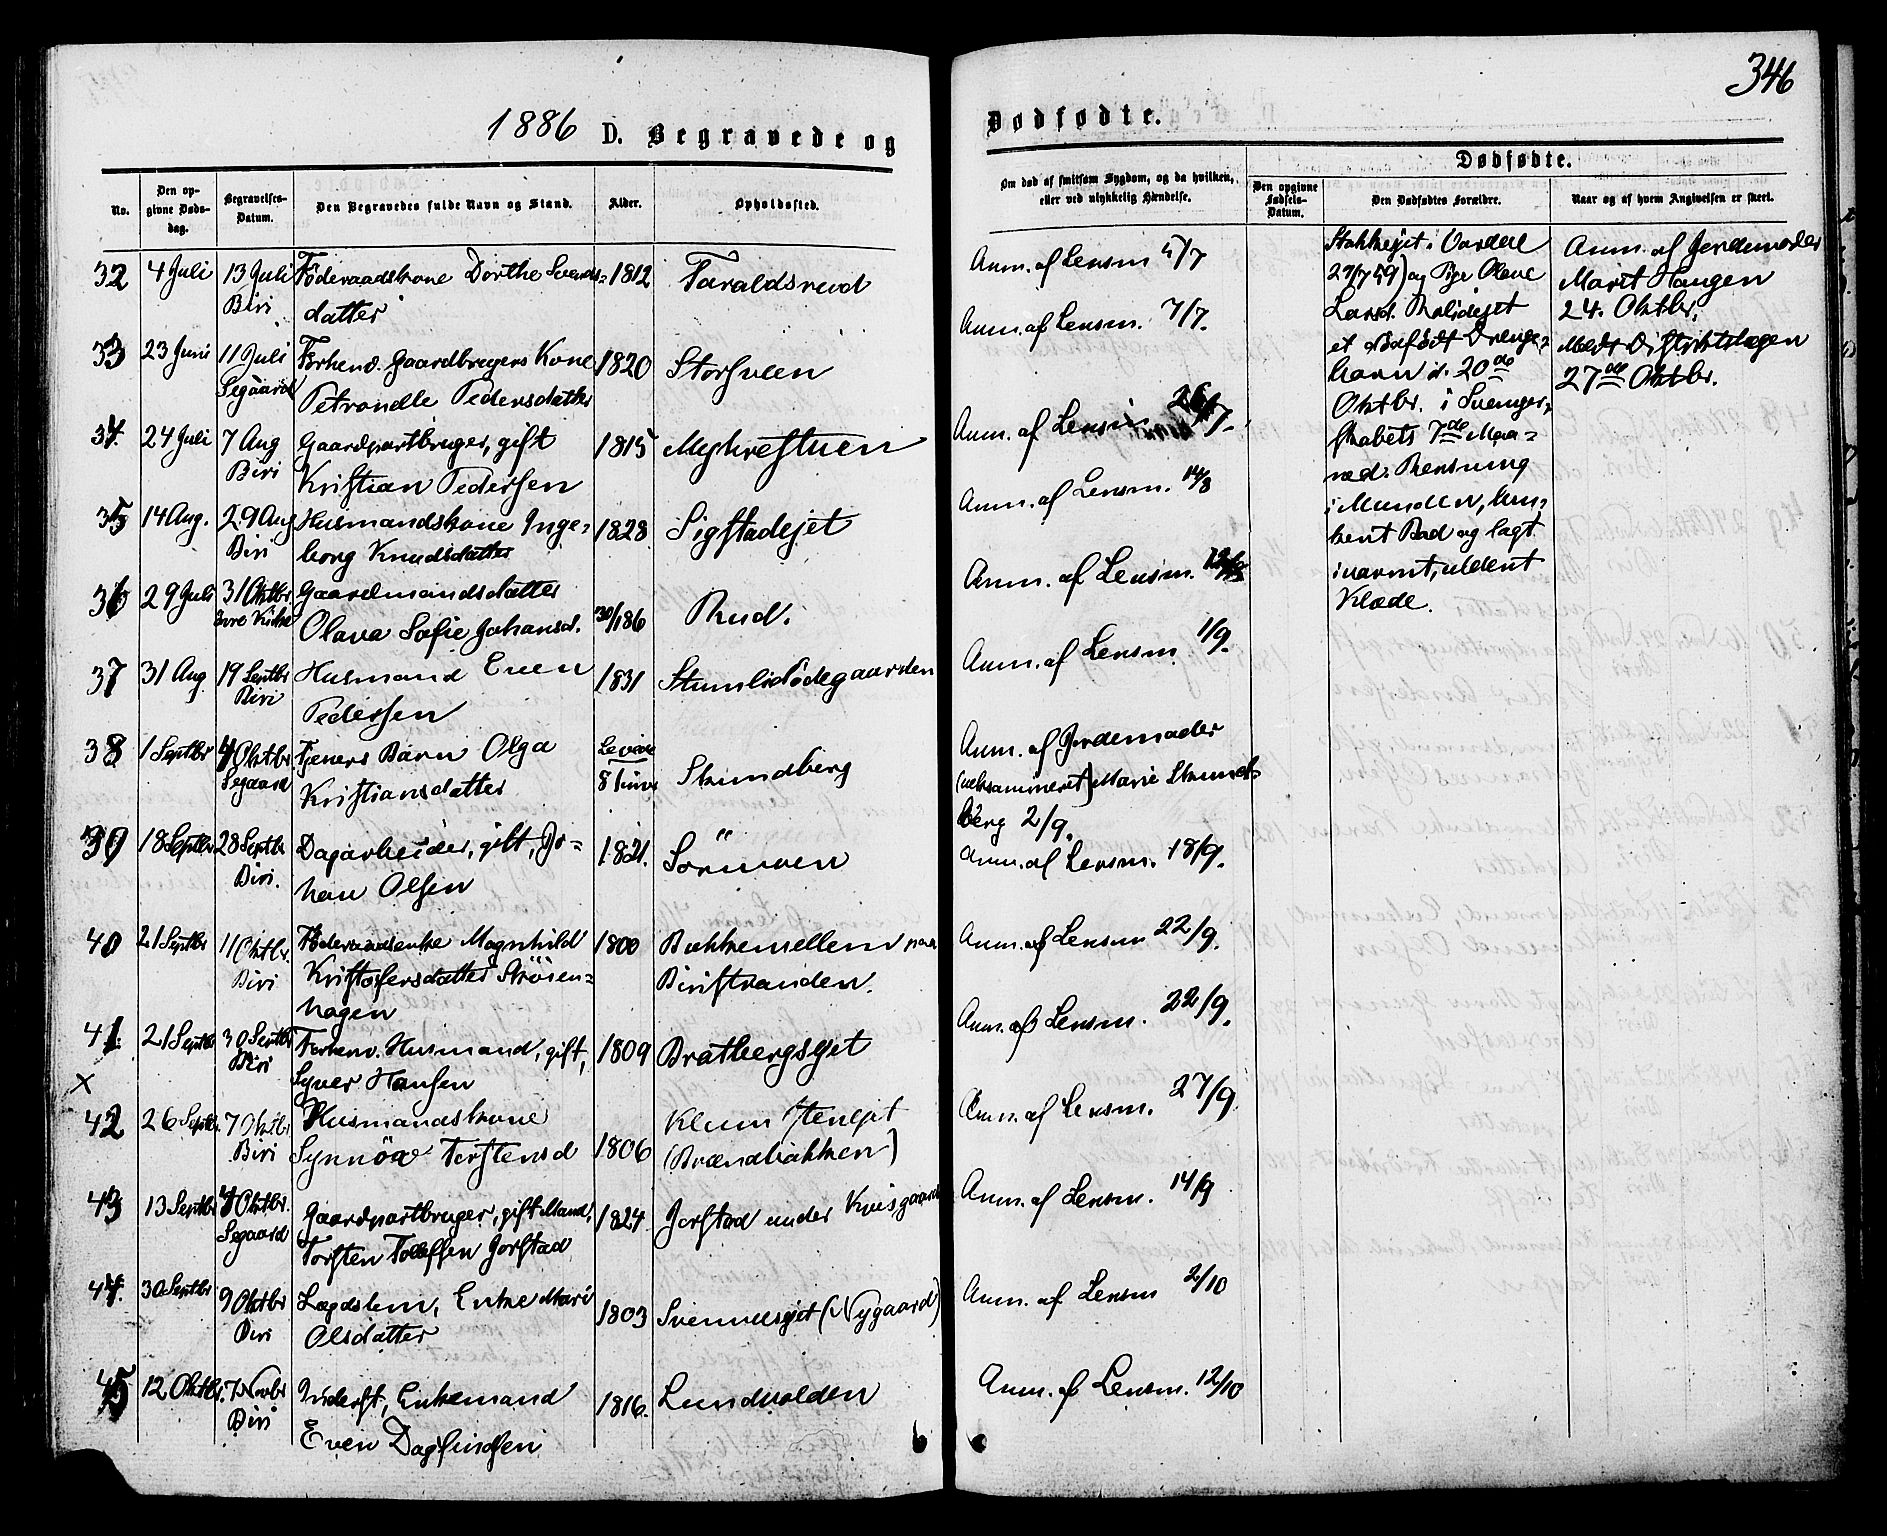 346
1886 D. Begravede og
Dødfødte.
No.
Den op-
givne Døds-
dag.
Begravelses-
Datum.
Den Begravedes fulde Navn og Stand.
Alder.
Opholdssted.
Om død af smitsom Sygdom, og da hvilken,
eller ved ulykkelig Hændelse.
Dødfødte.
Den opgivne
Fødsels-
Datum.
Den Dødfødtes Forældre.
Naar og af hvem Angivelsen er skeet.
32 4 Juli 13 Juli Föderaadskone Dorthe Svends- 1812 Faraldsrud
Biri datter
33 23 Juni 11 Juli Forhenv. Gaardbrugers Kone 1820 Storsveen
Segaard Petronelle Pedersdatter
34. 24 Juli 7 Aug Gaardpartbruger, gift 1815 Myhrestuen
Biri Kristian Pedersen
35 14 Aug. 29 Aug Husmandskone Inge- 1828 Sigstadejet
Biri borg Knudsdatter
36 29 Juli 31 Oktbr Gaardmandsdatter
Olava Sofie Johansd. Rud.
37 31 Aug 19 Septbr Husmand Even 1831
Biri Pedersen
38 1 Septbr 4 Oktbr Tjeners Barn Olga Levede
Segaard Kristiansdatter 8 Timer Skundberg
39 18 Septbr 28 Septbr Dagarbeider, gift, Jo- 1821.
Biri. han Olsen
40 21 Septbr 11 Oktbr. Föderaadsenke Magnhild 1800 Bakkemellem paa
Biri Kristofersdatter Biristranden.
hagen
41. 21 Septbr 30 Septbr Forhenv. Husmand, gift, 1809 Bratbergsejet
Biri Syver Hansen
x
42 26 Septbr. 7 Oktbr Husmandskone
Biri Synnöve Torstensd 1806 (Brændbakken)
43 13 Septbr 4 Oktbr. Gaardpartbruger, gift Mand, 1824 Jorstad under Kvisgaard
Segaard Torsten Tollefsen Jorstad
44. 30 Septbr 9 Oktbr Lægdslem, Enke Mari 1803 Svennesejet (Nygaard)
Biri Olsdatter
45 12 Oktbr. 7 Novbr Inderst, Enkemand 1816. Lundvolden
Biri Even Dagfindsen
Anm. af Lensm 5/7
Anm. af Lensm. 7/7.
Anm. af Lensm 26/7.
Anm. af Lensm. 14/8
Anm. af Lensm.
Anm. af Lensm 1/9.
Anm. af Jordemoder
(ueksamineret) Marie Skund-
berg 2/9.
Anm. af Lensm. 18/9.
Anm. af Lensm 22/9.
Anm. af Lensm. 22/9.
Anm. af Lensm. 27/9.
Anm. af Lensm. 14/9
Anm. af Lensm 2/10
Anm. af Lensm. 12/10
og Pige Olave
et dødfødt Drenge-
barn d. 20de
Oktbr. i Svanger-
skabets 7de Maa-
ned. Rensning
i Munden, lun-
kent Bad og lagt
i varmt, uldent
Klæde.
Anm. af Jordemoder
Marit Haugen
24. Oktbr.
Meldt Distriktslægen
27de Oktbr.